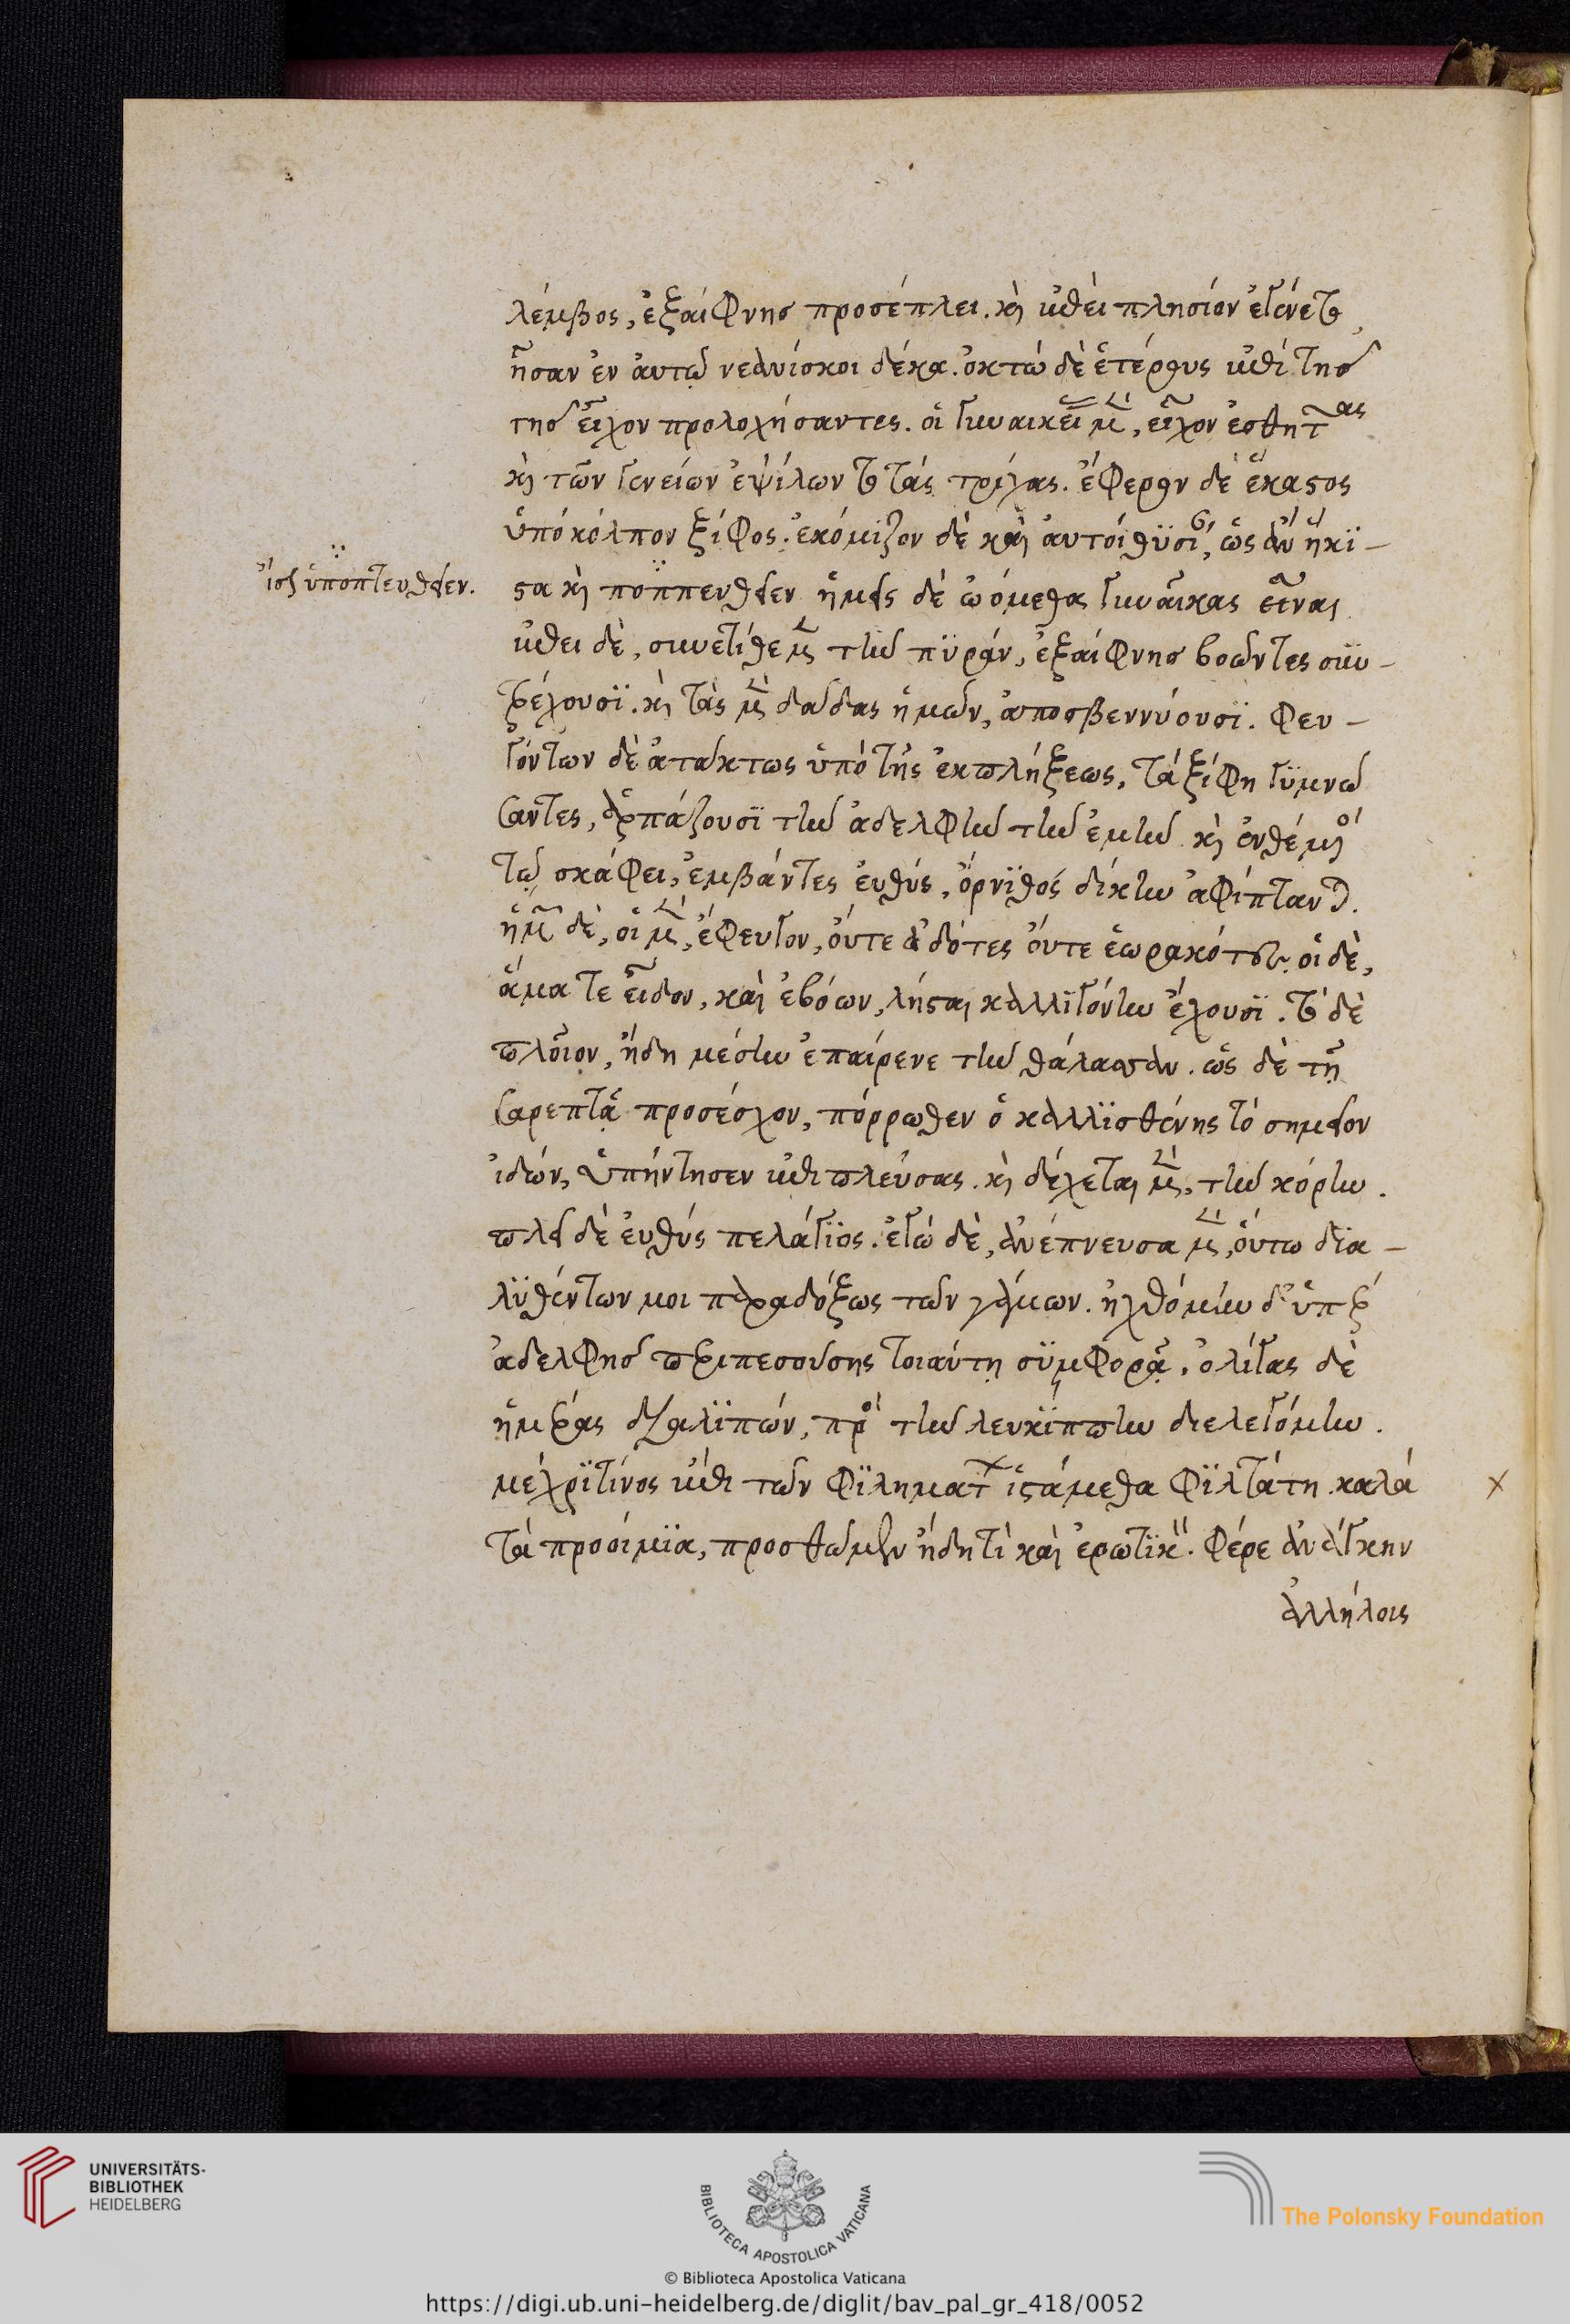 λέμβος, ἐξαίφνης προσέπλει. καὶ κατὰ πλησίον ἐγένετο,
ἦσαν ἐν αὐτῷ νεανίσκοι δέκα. ὀκτὼ δὲ ἑτέρους ἐπὶ τῆς
γῆς εἶχον προλοχήσαντες. οἳ γυναικείας μὲν, εἶχον ἐσθῆτας
καὶ τῶν γενείων ἐψίλωντο τὰς τρίχας. ἔφερον δὲ ἕκαστος
ὑπὸ κόλπον ξίφος. ἐκόμιζον δὲ καὶ αὐτοὶ θυσίαν, ὡς ἂν ἥκι-
στα καὶ ποππευθεῖεν ἡμεῖς δὲ ᾠόμεθα γυναῖκας εἶναι
ἴσως ὑποπτευθεῖεν.
ἐπεὶ δὲ, συνετίθεμεν τὴν πυρὰν, ἐξαίφνης βοῶντες συν-
τρέχουσι. καὶ τὰς μὲν δᾷδας ἡμῶν, ἀποσβεννύουσι. φευ-
γόντων δὲ ἀτάκτως ὑπὸ τῆς ἐκπλήξεως, τὰ ξίφη γυμνώ
σαντες, ἁρπάζουσι τὴν ἀδελφὴν τὴν ἐμὴν καὶ ἐνθέμενοι
τῷ σκάφει, ἐμβάντες εὐθὺς, ὄρνιθος δίκην ἀφίπτανται.
ἡμῶν δὲ, οἱ μὲν, ἔφευγον, οὔτε εἰδότες οὔτε ἑωρακότες. οἱ δὲ,
ἅμα τε εἶδον, καὶ ἐβόων, λῃσταὶ καλλιγόνην ἔχουσι. τὸ δὲ
πλοῖον, ἤδη μέσην ἐπαίρενε τὴν θάλασσαν. ὡς δὲ τῇ
σαρεπτᾷ προσέσχον, πόρρωθεν ὁ καλλισθένης τὸ σημεῖον
ἰδὼν, ὑπήντησεν ἐπιπλεύσας. καὶ δέχεται μὲν, τὴν κόρην.
πλεῖ δὲ εὐθὺς πελάγιος. ἐγὼ δὲ, ἀνέπνευσα μὲν, οὕτω δια-
λυθέντων μοι παραδόξως τῶν γάμων. ἠχθόμην δ' ὑπὲρ
ἀδελφῆς περιπεσούσης τοιαύτῃ συμφορᾷ. ὀλίγας δὲ
ἡμέρας διαλιπὼν, πρὸς τὴν λευκίππην διελεγόμην.
μέχρι τίνος ἐπὶ τῶν φιλημάτων ἱστάμεθα φιλτάτη. καλὰ
τὰ προοίμια, προσθῶμεν ἤδη τὶ καὶ ἐρωτικόν. φέρε ἀνάγκην
ἀλλήλοις
UNIVERSITÄTS-
BIBLIOTHEK
HEIDELBERG
BIBLIOTECA APOSTOLICA VATICANA
The Polonsky Foundation
© Biblioteca Apostolica Vaticana
https://digi.ub.uni-heidelberg.de/diglit/bav_pal_gr_418/0052